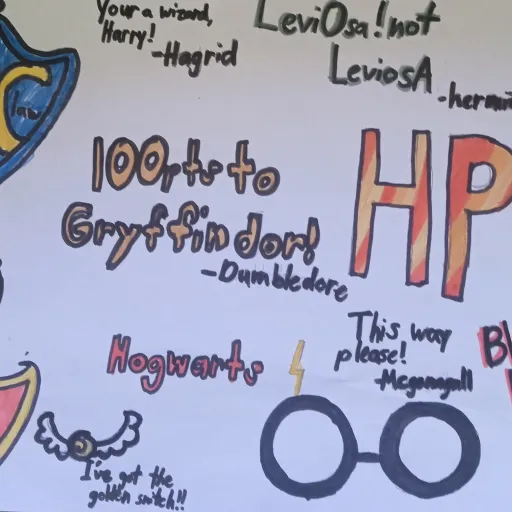 Your a wizard,
Harry!
-Hagrid
LeviOsa! not
LeviosA
-hermi
law
100pts to
Gryffindor!
-Dumbledore
HP
This way
please!
-Mcgonagall
Hogwarts
I've got the
golden snitch!!